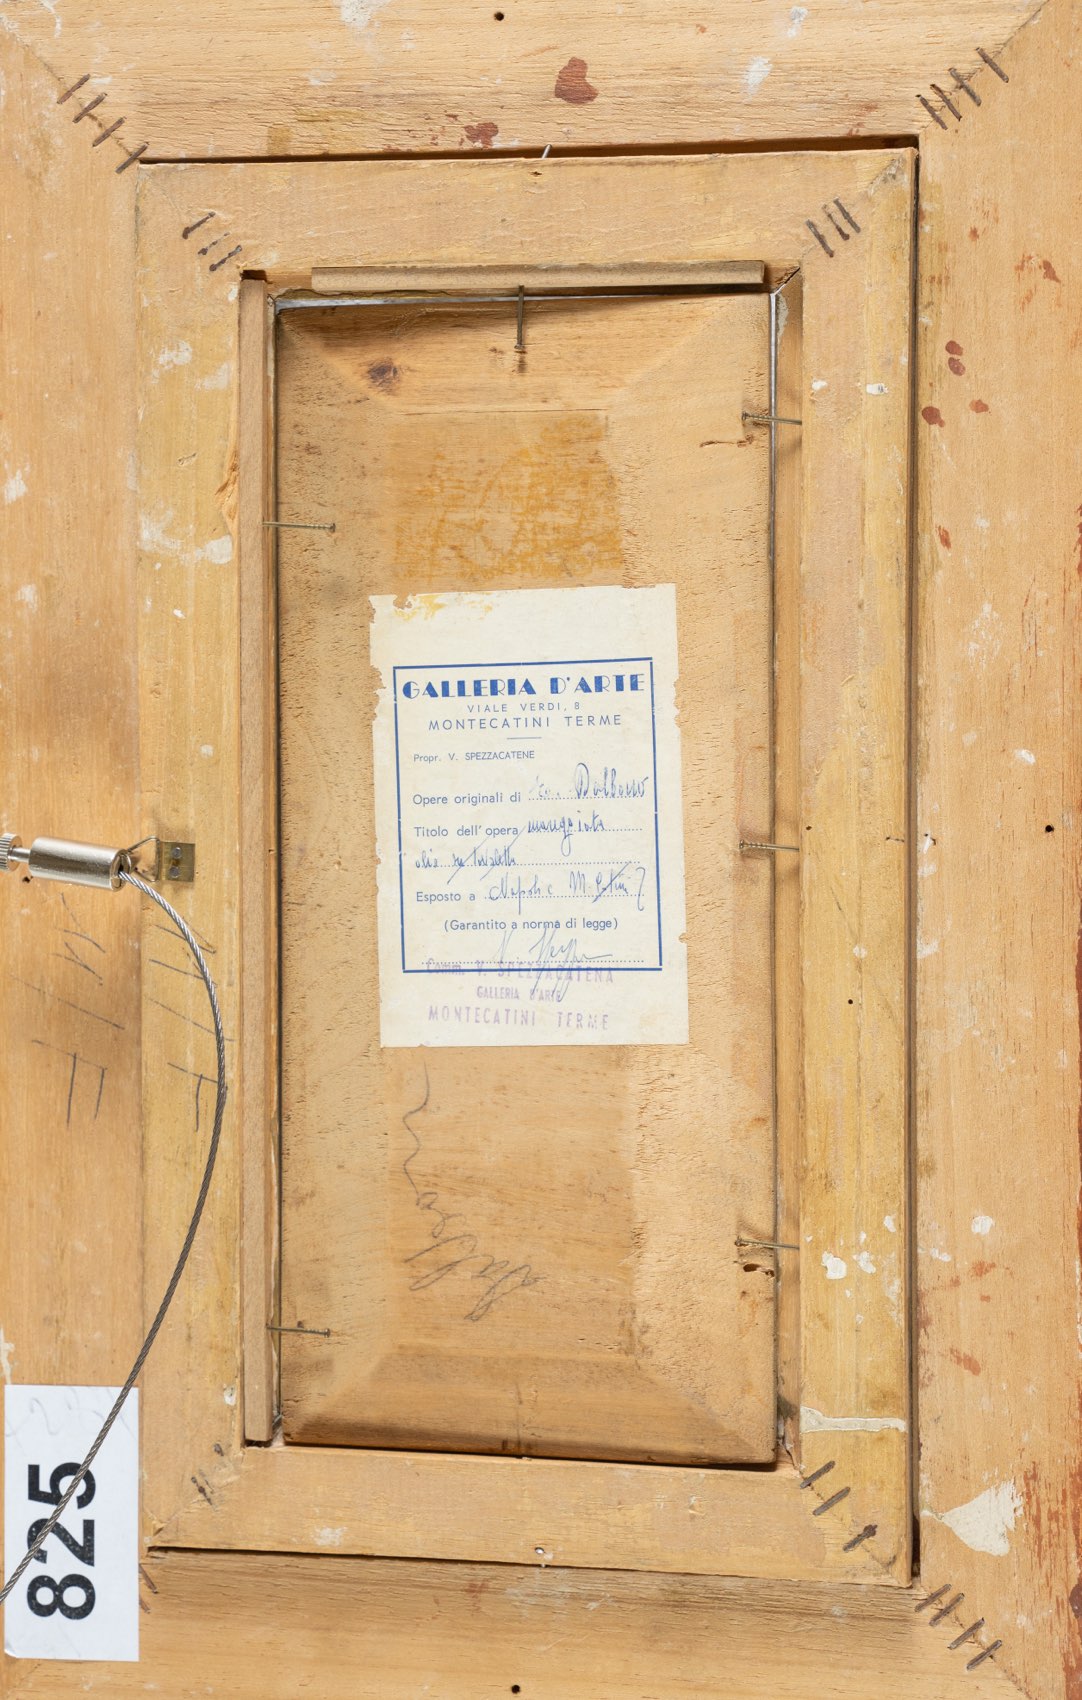 GALLERIA D'ARTE
VIALE VERDI, 8
MONTECATINI TERME
Propr. V. SPEZZACATENE
Opere originali di Dalbono
Titolo dell'opera
olio su tavoletta
Esposto a Napoli e M. Catini
(Garantito a norma di legge)
Comm. V. SPEZZACATENA
GALLERIA D'ARTE
MONTECATINI TERME
825